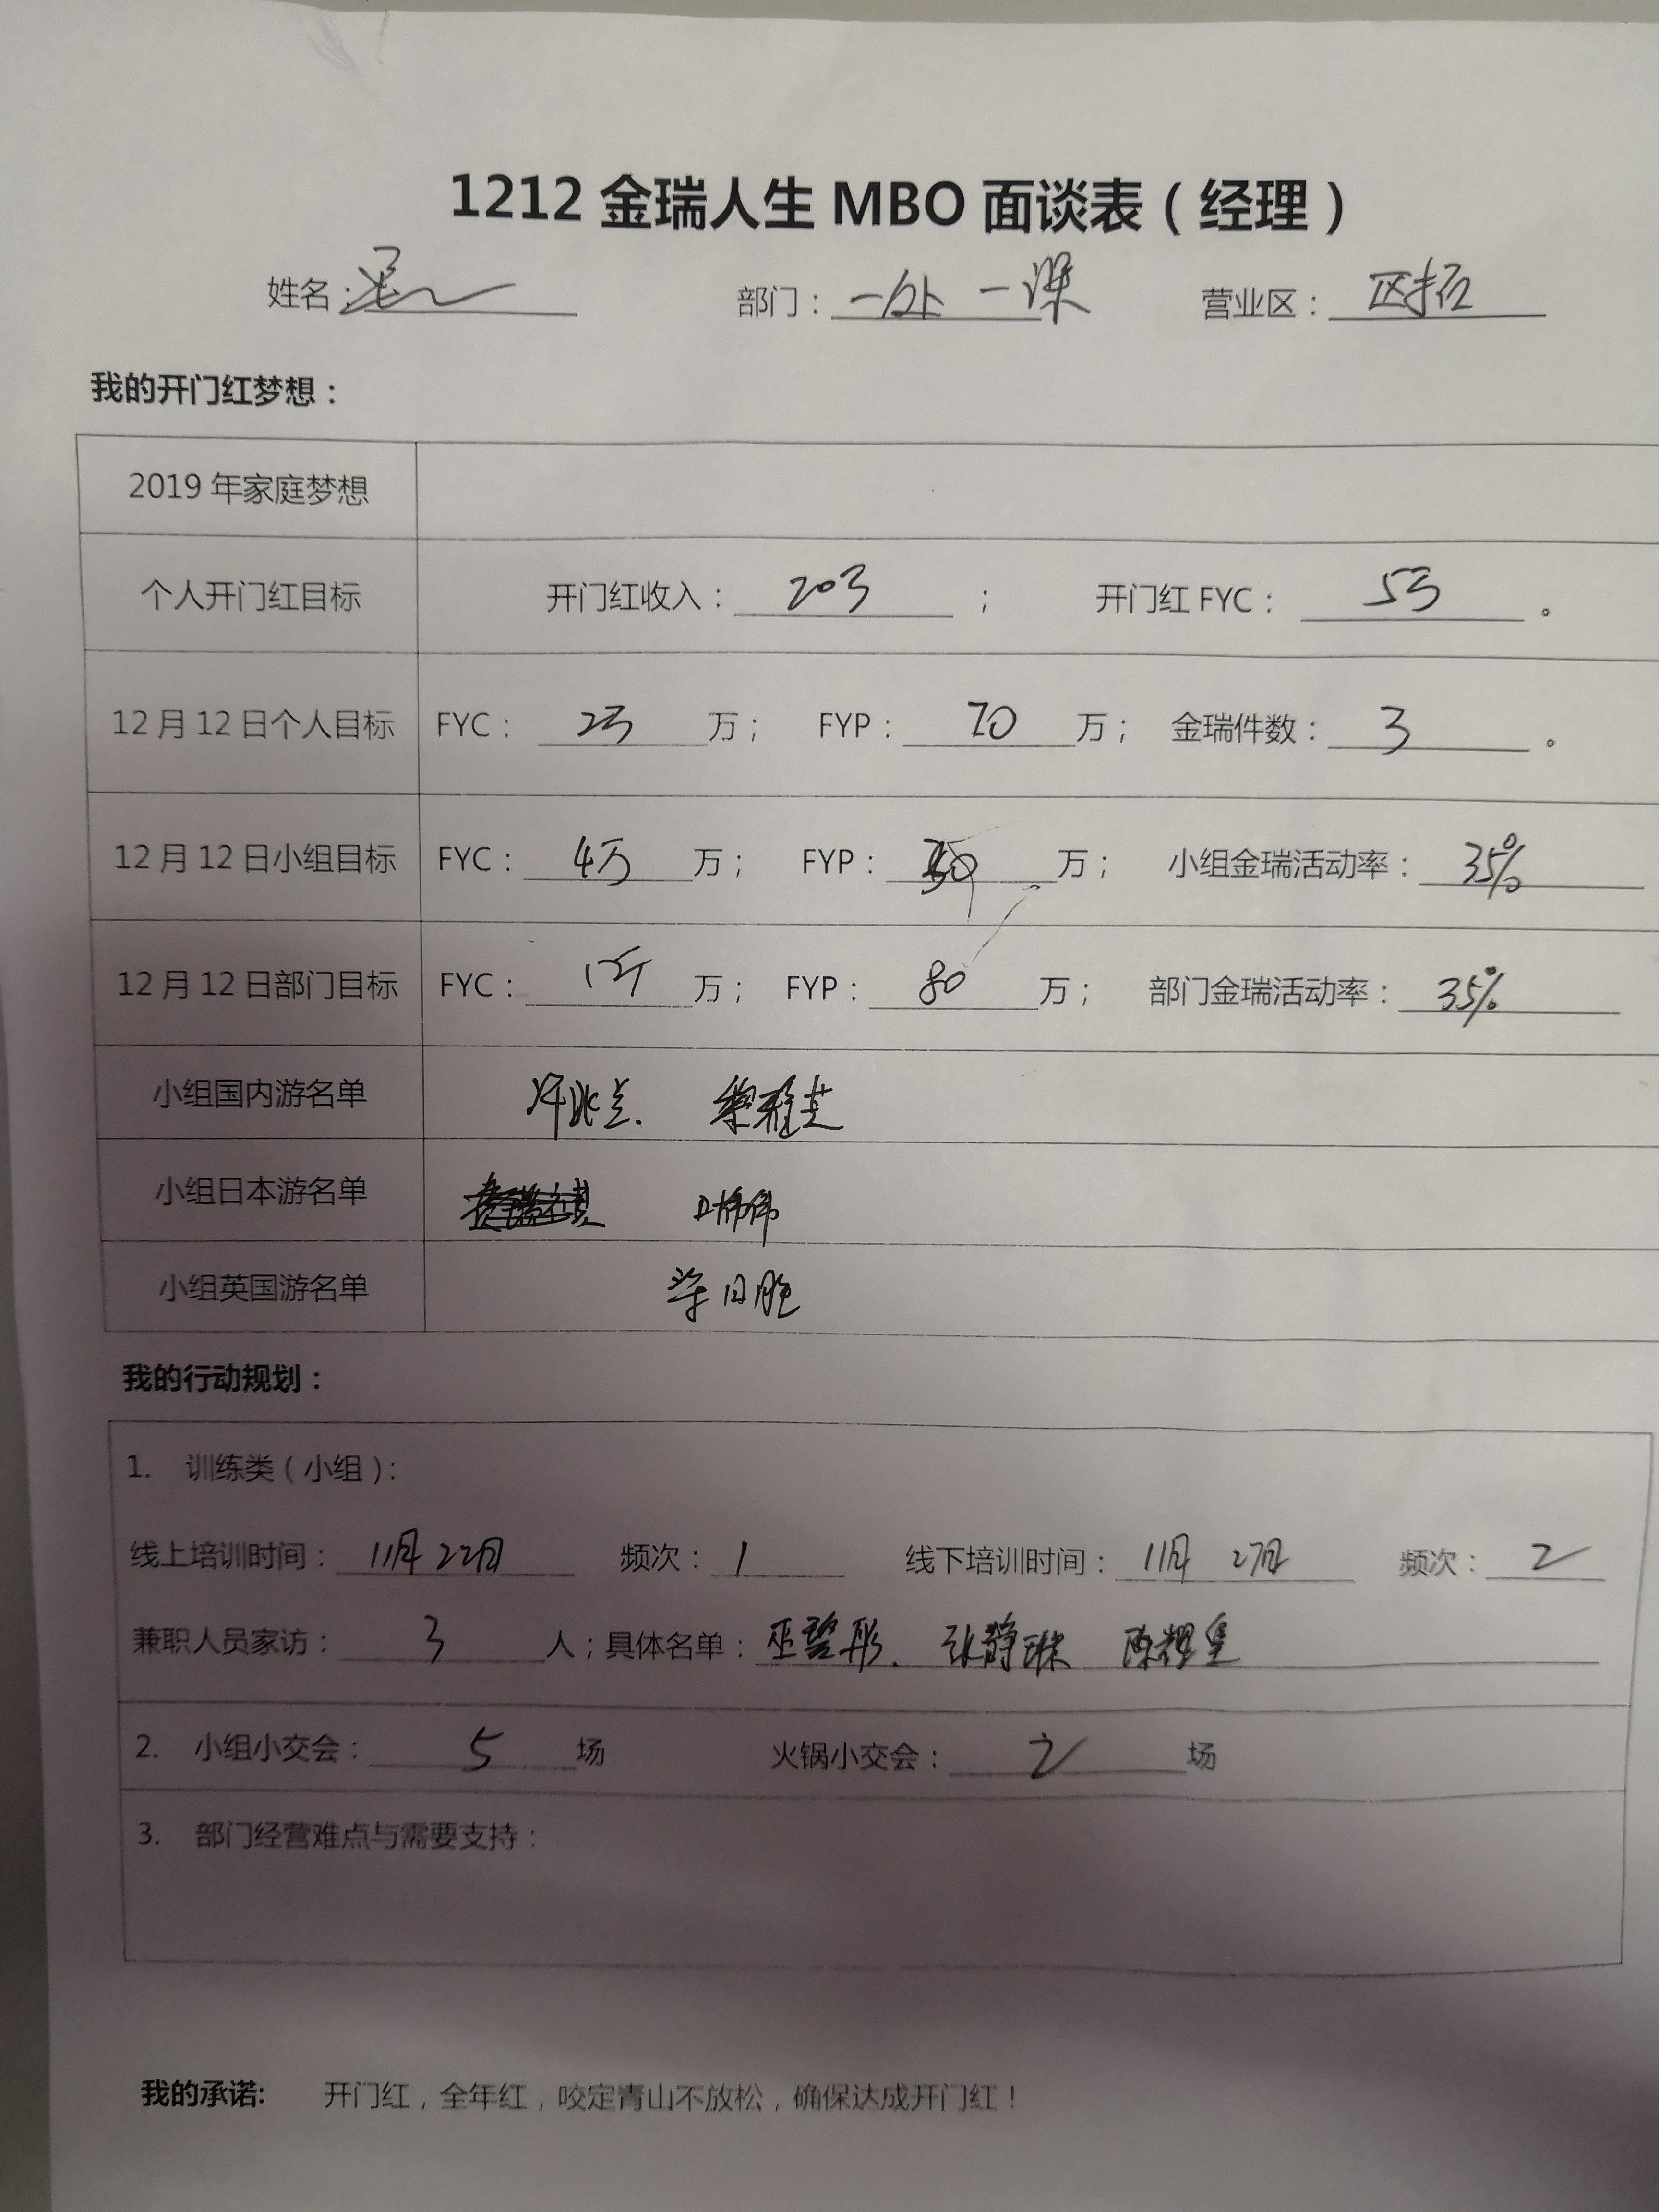 1212 金瑞人生 MBO 面谈表（经理）
姓名： 部门：一处 一课 营业区：区拓
我的开门红梦想：
2019 年家庭梦想
个人开门红目标 开门红收入： ； 开门红 FYC： 。
12 月 12 日个人目标 FYC： 2万 万； FYP： 万； 金瑞件数： 3 。
12 月 12 日小组目标 FYC： 4万 万； FYP： 万； 小组金瑞活动率： 35%
12 月 12 日部门目标 FYC： 万； FYP： 80 万； 部门金瑞活动率： 35%
小组国内游名单
小组日本游名单
小组英国游名单
我的行动规划：
1. 训练类（小组）：
线上培训时间： 11月22日 频次： 1 线下培训时间： 11月 27日 频次： 2
兼职人员家访： 3 人；具体名单： 巫碧彤. 张静琳
2. 小组小交会： 5 场 火锅小交会： 2 场
3. 部门经营难点与需要支持：
我的承诺: 开门红，全年红，咬定青山不放松，确保达成开门红！